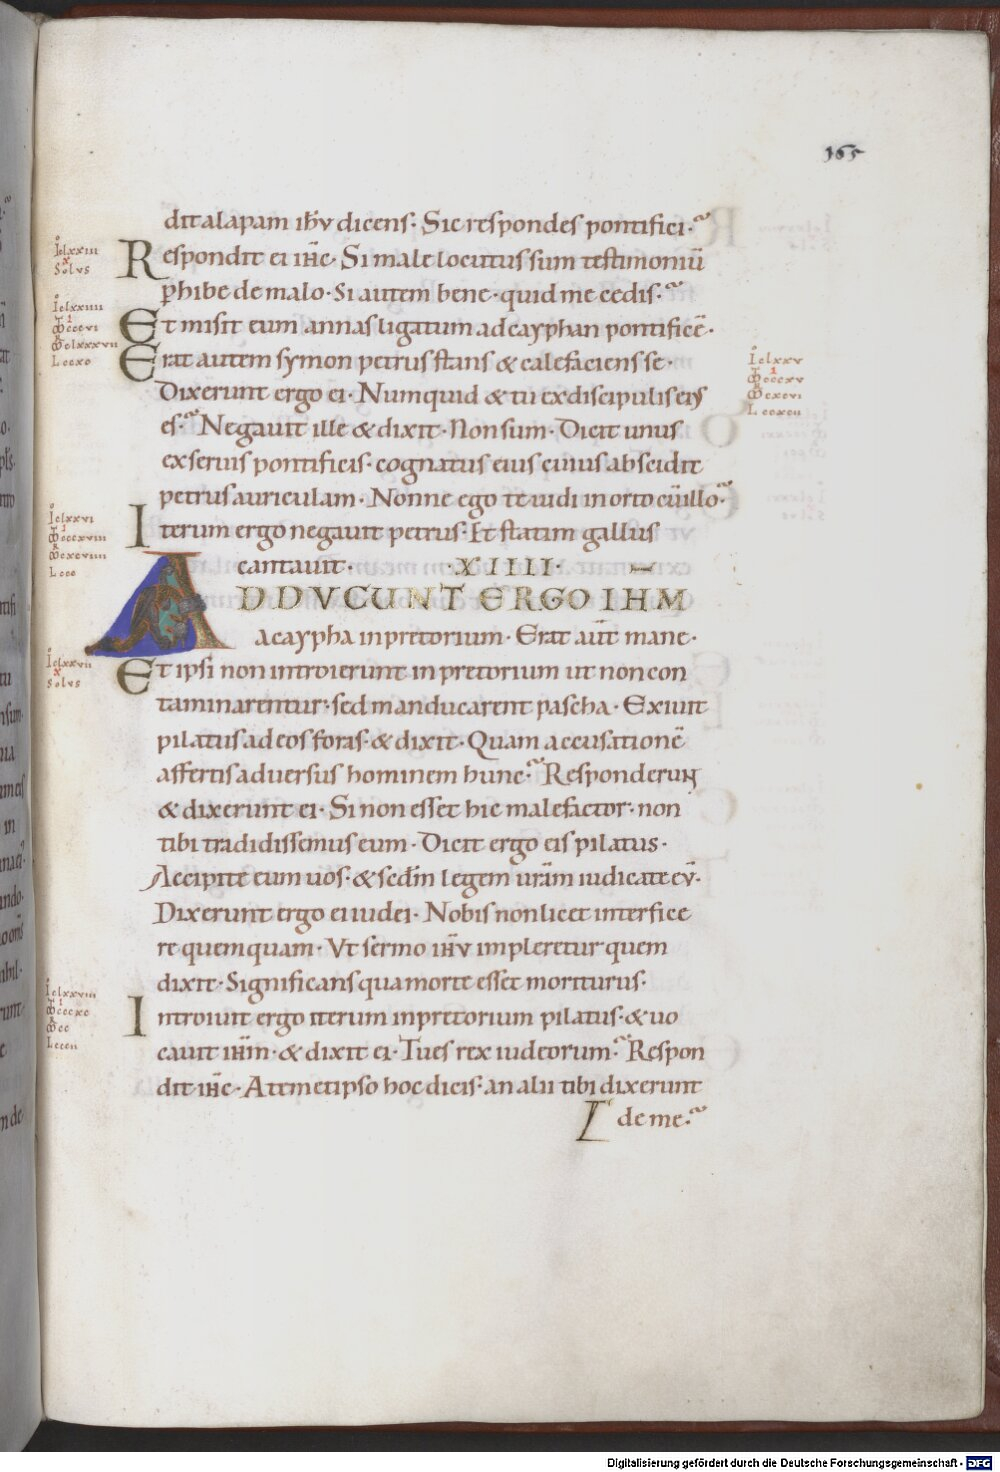 165
dit alapam ihu dicens· Sic respondes pontifici·
Respondit ei ihc· Si male locutus sum testimoniū
phibe de malo· Si autem bene· quid me cedis·
Et misit eum annas ligatum ad cayphan pontificē·
Erat autem symon petrus stans & calefaciens se·
Dixerunt ergo ei· Numquid & tu ex discipulis eis
es· Negauit ille & dixit· Non sum· Dicit unus
ex seruis pontificis· cognatus eius cuius abscidit
petrus auriculam· Nonne ego te uidi in orto cū illo·
Iterum ergo negauit petrus· Et statim gallus
cantauit· ·XIIII·
ADDVCUNT ERGO IHM
a caypha in pretorium· Erat aūt mane·
Et ipsi non introierunt in pretorium ut non con
taminarentur· sed manducarent pascha· Exiuit
pilatus ad eos foras· & dixit· Quam accusationē
affertis aduersus hominem hunc· Responderun
& dixerunt ei· Si non esset hic malefactor· non
tibi tradidissemus eum· Dicit ergo eis pilatus·
Accipite eum uos· & scdm legem uram iudicate eū·
Dixerunt ergo ei iudei· Nobis non licet interfice
re quemquam· Vt sermo ihu impleretur quem
dixit· Significans qua morte esset moriturus·
Introiuit ergo iterum in pretorium pilatus· & uo
cauit ihm· & dixit ei· Tu es rex iudeorum· Respon
dit ihc· A temetipso hoc dicis· an alii tibi dixerunt
de me·
clxxiii
Solus
clxxiiii
clxxv
clxxvi
clxxvii
Solus
clxxviii
Digitalisierung gefördert durch die Deutsche Forschungsgemeinschaft - DFG